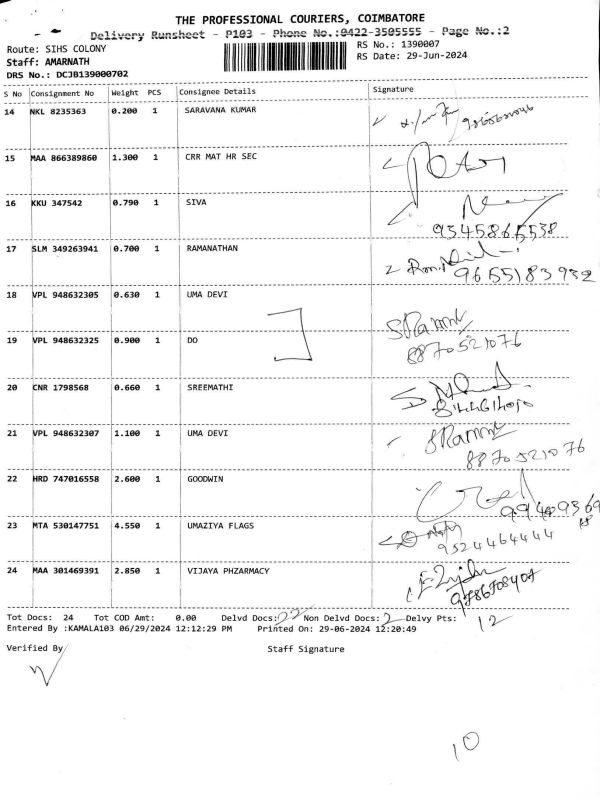 THE PROFESSIONAL COURIERS, COIMBATORE
Delivery Runsheet - P103 - Phone No.:0422-3505555 - Page No.:2
Route: SIHS COLONY RS No.: 1390007
Staff: AMARNATH RS Date: 29-Jun-2024
DRS No.: DCJB139000702
S No Consignment No Weight PCS Consignee Details Signature
14 NKL 8235363 0.200 1 SARAVANA KUMAR
15 MAA 866389860 1.300 1 CRR MAT HR SEC
16 KKU 347542 0.790 1 SIVA
9345865538
17 SLM 349263941 0.700 1 RAMANATHAN
9655183932
18 VPL 948632305 0.630 1 UMA DEVI
19 VPL 948632325 0.900 1 DO
8870521076
20 CNR 1798568 0.660 1 SREEMATHI
21 VPL 948632307 1.100 1 UMA DEVI
8870521076
22 HRD 747016558 2.600 1 GOODWIN
23 MTA 530147751 4.550 1 UMAZIYA FLAGS
9524464444
24 MAA 301469391 2.850 1 VIJAYA PHZARMACY
9786708407
Tot Docs: 24 Tot COD Amt: 0.00 Delvd Docs: 22 Non Delvd Docs: 2 Delvy Pts: 12
Entered By :KAMALA103 06/29/2024 12:12:29 PM Printed On: 29-06-2024 12:20:49
Verified By Staff Signature
10